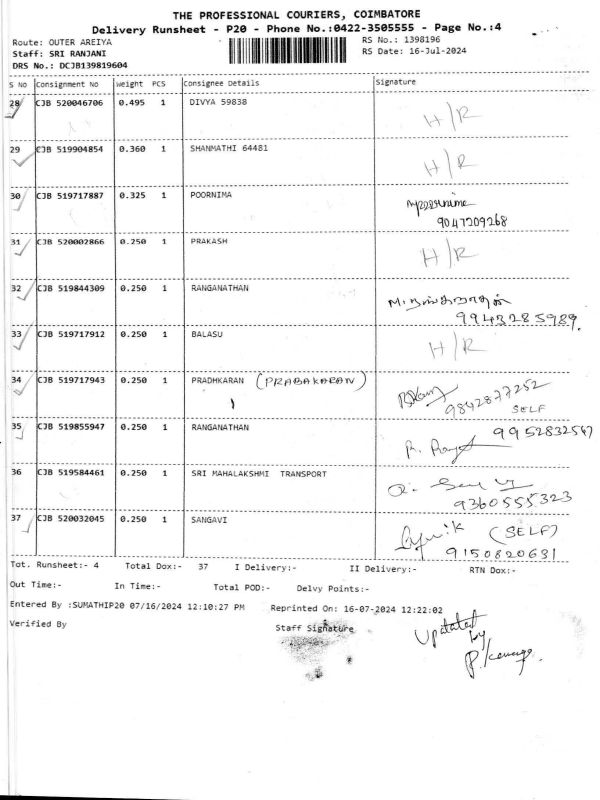 THE PROFESSIONAL COURIERS, COIMBATORE
Delivery Runsheet - P20 - Phone No.:0422-3505555 - Page No.:4
Route: OUTER AREIYA RS No.: 1398196
Staff: SRI RANJANI RS Date: 16-Jul-2024
DRS No.: DCJB139819604
S No Consignment No Weight PCS Consignee Details Signature
28 CJB 520046706 0.495 1 DIVYA 59838 H/R
29 CJB 519904854 0.360 1 SHANMATHI 64481 H/R
30 CJB 519717887 0.325 1 POORNIMA
9047209268
31 CJB 520002866 0.250 1 PRAKASH H/R
32 CJB 519844309 0.250 1 RANGANATHAN
9943285989.
33 CJB 519717912 0.250 1 BALASU H/R
34 CJB 519717943 0.250 1 PRADHKARAN (PRABAKARAN)
9842877252
SELF
35 CJB 519855947 0.250 1 RANGANATHAN 9952832547
36 CJB 519584461 0.250 1 SRI MAHALAKSHMI TRANSPORT
9360555323
37 CJB 520032045 0.250 1 SANGAVI (SELF)
9150820631
Tot. Runsheet:- 4 Total Dox:- 37 I Delivery:- II Delivery:- RTN Dox:-
Out Time:- In Time:- Total POD:- Delvy Points:-
Entered By :SUMATHIP20 07/16/2024 12:10:27 PM Reprinted On: 16-07-2024 12:22:02
Verified By Staff Signature
Updated
by